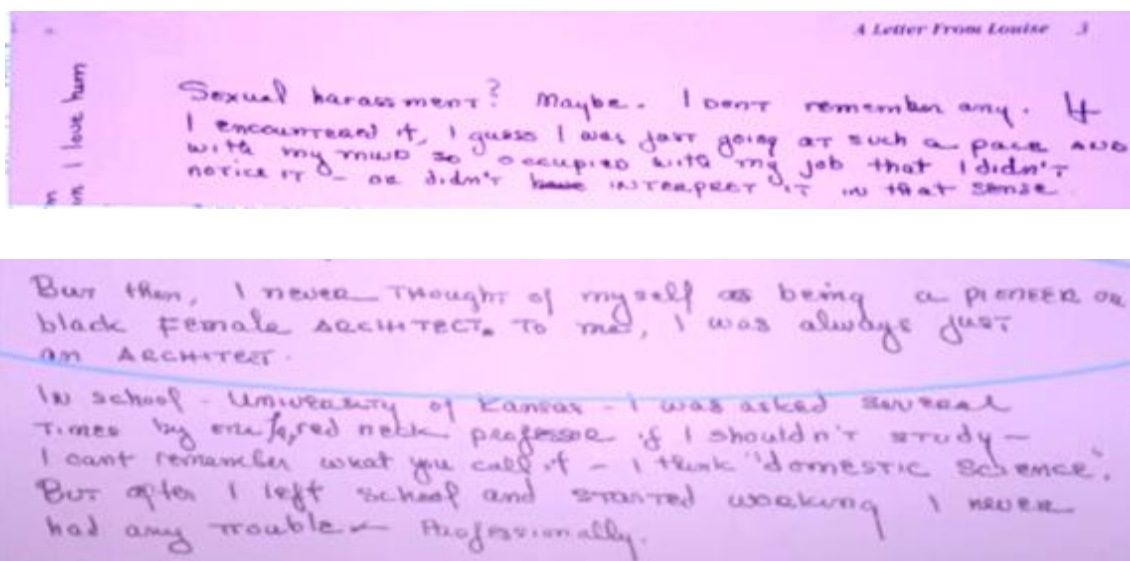 A Letter From Louise 3
in I love him
Sexual harassment? Maybe. I dont remember any. If
I encountered it, I guess I was just going at such a pace AND
with my mind so occupied with my job that I didn't
notice it – or didn't have interpret it in that sense.
But then, I never thought of myself as being a pioneer or
black female ARCHITECT. To me, I was always just
an ARCHITECT.
In school – University of Kansas – I was asked several
times by one red neck professor if I shouldn't study –
I cant remember what you call it – I think "domestic science".
But after I left school and started working I never
had any trouble – Professionally.